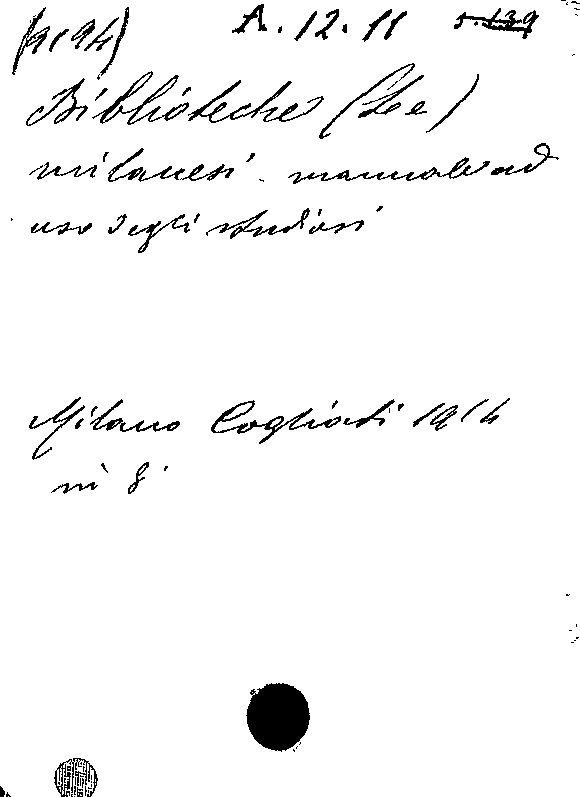 (9194) A. 12. 11
Biblioteche (Le)
milanesi - manuale ad
uso degli studiosi
Milano Cogliati 1914
in 8°